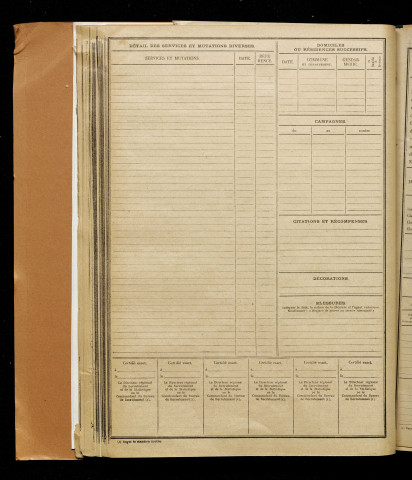 DÉTAIL DES SERVICES ET MUTATIONS DIVERSES.
SERVICES ET MUTATIONS.
DATE.
RÉFÉ-
RENCE.
DOMICILES
OU RÉSIDENCES SUCCESSIFS.
DATE.
COMMUNE
SUBDI-
CAMPAGNES
du
au
CITATIONS ET RÉCOMPENSES
DÉCORATIONS
BLESSURES
Certifié exact,
Certifié exact,
Certifié exact,
Certifié exact,
Certifié exact,
Certifié exact,
A
A
A
A
A
A
le
le
le
le
le
le
Le Directeur régional
du Recrutement
et de la Statistique
ou le
Commandant du Bureau
de Recrutement (1),
Le Directeur régional
du Recrutement
et de la Statistique
ou le
Commandant du Bureau
de Recrutement (1),
Le Directeur régional
du Recrutement
et de la Statistique
ou le
Commandant du Bureau
de Recrutement (1),
Le Directeur régional
du Recrutement
et de la Statistique
ou le
Commandant du Bureau
de Recrutement (1),
Le Directeur régional
du Recrutement
et de la Statistique
ou le
Commandant du Bureau
de Recrutement (1),
Le Directeur régional
du Recrutement
et de la Statistique
ou le
Commandant du Bureau
de Recrutement (1),
(1) Biffer la mention inutile.